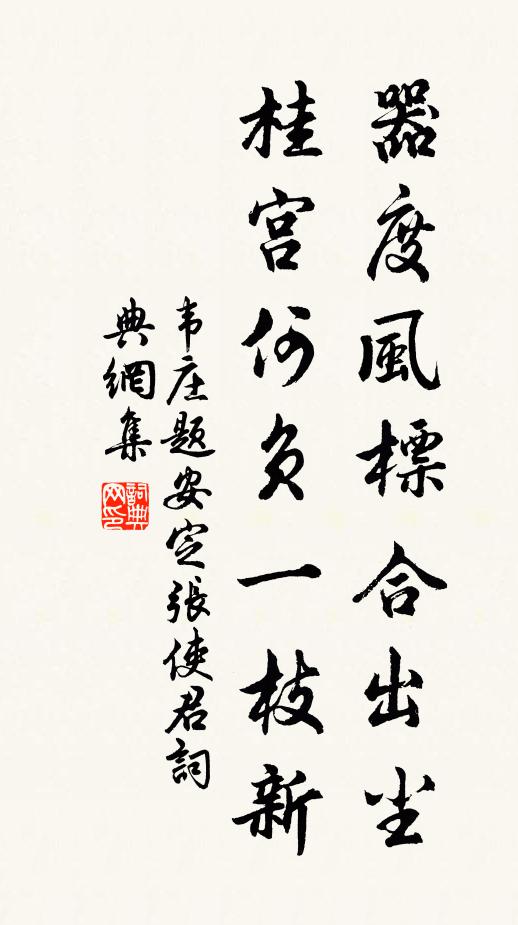 器度風標合出尘
桂宫何负一枝新
韦庄题安定張使君詞
典網集
詞典网印